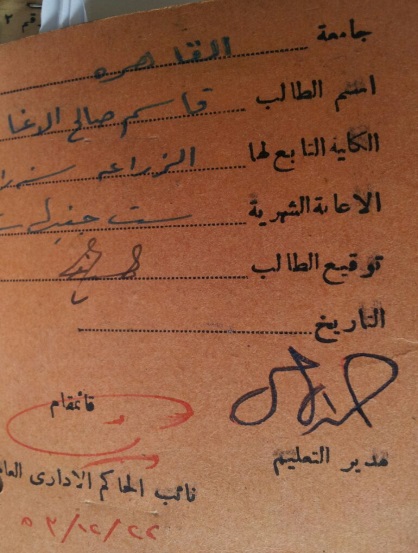 رقم ٢
جامعة القاهره
اسم الطالب قاسم صالح الاغا
الكلية التابع لها الزراعه
الاعانة الشهرية ست
توقيع الطالب
التاريخ
قائمقام
مدير التعليم
نائب الحاكم الادارى العام